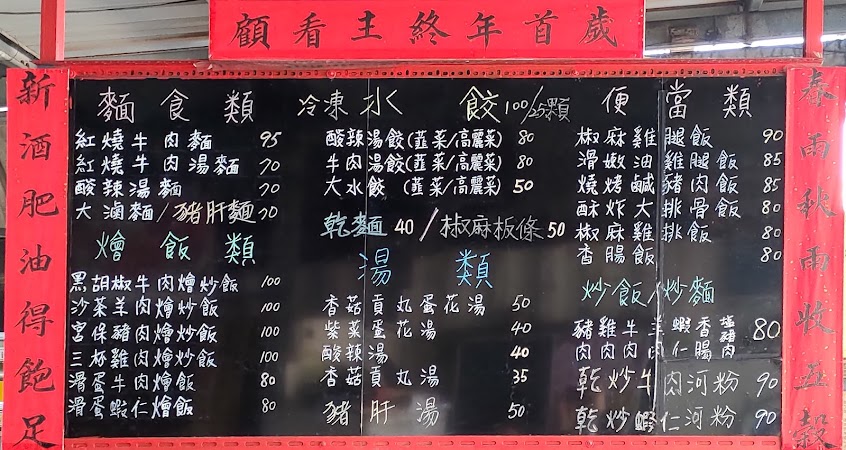 顧看主終年首歲
新酒肥油得飽足
麵食類
紅燒牛肉麵 95
紅燒牛肉湯麵 70
酸辣湯麵 70
大滷麵/豬肝麵 70
燴飯類
黑胡椒牛肉燴炒飯 100
沙茶羊肉燴炒飯 100
宮保豬肉燴炒飯 100
三杯雞肉燴炒飯 100
滑蛋牛肉燴飯 80
滑蛋蝦仁燴飯 80
冷凍水餃 100/25顆
酸辣湯餃(韮菜/高麗菜) 80
牛肉湯餃(韮菜/高麗菜) 80
大水餃(韮菜/高麗菜) 50
乾麵 40/椒麻板條 50
湯類
香菇貢丸蛋花湯 50
紫菜蛋花湯 40
酸辣湯 40
香菇貢丸湯 35
豬肝湯 50
便當類
椒麻雞腿飯 90
滑嫩油雞腿飯 85
燒烤鹹豬肉飯 85
酥炸大排骨飯 80
椒麻雞排飯 80
香腸飯 80
炒飯/炒麵
豬肉 雞肉 牛肉 羊肉 蝦仁 香腸 鹽豬肉 80
乾炒牛肉河粉 90
乾炒蝦仁河粉 90
春雨秋雨收五穀